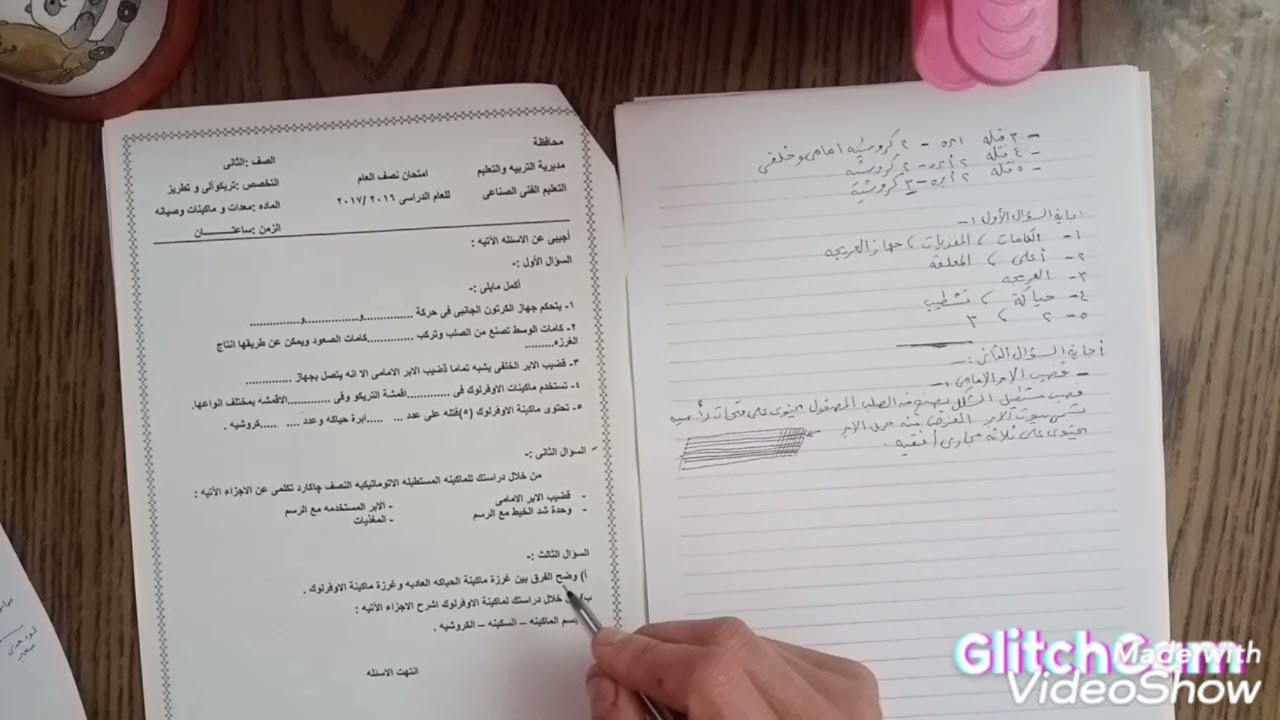 محافظة
مديرية التربيه والتعليم
التعليم الفنى الصناعى
امتحان نصف العام
للعام الدراسى ٢٠١٦ /٢٠١٧
الصف :الثانى
التخصص :تريكوآلى و تطريز
الماده :معدات و ماكينات وصيانه
الزمن :ساعتـــــــان
أجيبى عن الاسئله الآتيه :
السؤال الأول :-
أكمل مايلى :-
١- يتحكم جهاز الكرتون الجانبى فى حركة ................و................و................
٢- كامات الوسط تصنع من الصلب وتركب ..............كامات الصعود ويمكن عن طريقها انتاج
الغرزه..........
٣- قضيب الابر الخلفى يشبه تماما قضيب الابر الامامى الا انه يتصل بجهاز ..............
٤- تستخدم ماكينات الاوفرلوك فى .............اقمشة التريكو وفى .............الاقمشه بمختلف انواعها.
٥- تحتوى ماكينة الاوفرلوك (٥)فتله على عدد ... .....ابرة حياكه وعدد .... .....كروشيه .
السؤال الثانى :-
من خلال دراستك للماكينه المستطيله الاتوماتيكيه النصف چاكارد تكلمى عن الاجزاء الآتيه :
- قضيب الابر الامامى
- الابر المستخدمه مع الرسم
- وحدة شد الخيط مع الرسم
- المغذيات
السؤال الثالث :-
أ) وضح الفرق بين غرزة ماكينة الحياكه العاديه وغرزة ماكينة الاوفرلوك .
ب) خلال دراستك لماكينة الاوفرلوك اشرح الاجزاء الآتيه :
سم الماكينه – السكينه – الكروشيه .
انتهت الاسئله
- ٣ فتله ابره - ٢ كروشيه امامى وخلفى
- ٤ فتله ٢ أبره - ٢ كروشيه
- ٥ فتله ٢ أبره - ٣ كروشية
اجابة السؤال الأول :-
١- الكامات ، المغذيات ، جهاز العربجه
٢- أعلى ، المعلقة
٣- العربجه
٤- حياكة ، تشطيب
٥- ٢ ، ٣
أجابة السؤال الثانى :-
- قضيب الابر الامامى :-
قضيب مستطيل الشكل يصنع من الصلب المصقول يحتوى على فتحات رأسيه
تسمى بيوت الابر الغرض منه حمل الابر
يحتوى على ثلاثة مجارى أفقيه .
GlitchCam
Made with
VideoShow